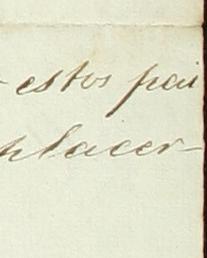 - estos pai
placer-